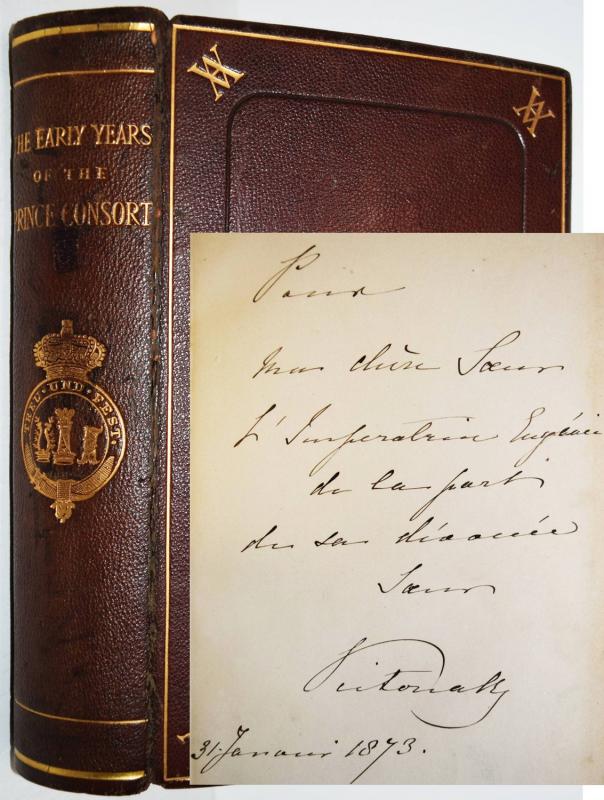 THE EARLY YEARS
OF THE
PRINCE CONSORT
TREU · UND · FEST
VA
VA
Pour
Ma chère Sœur
L'Imperatrice Eugénie
de la part
de sa dévouée
Sœur
Victoria R
31. Janvier 1873.